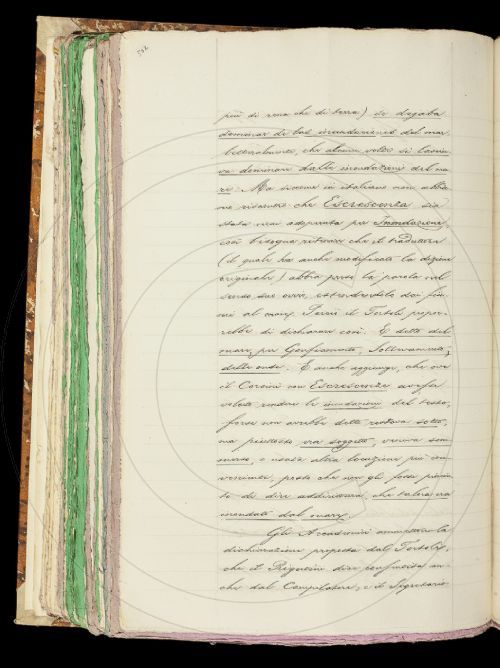 più di rena che di terra) se dejaba
dominar de las inundaciones del mar
letteralmente, che alcune volte si lascia-
va dominare dalle inondazioni del ma-
re. Ma siccome in italiano non abbia-
mo riscontro che Escrescenza sia
stata mai adoperata per Inondazione,
così bisogna ritenere che il traduttore
(il quale ha anche modificato la
originale) abbia preso la parola nel
senso suo ovvio, estendendolo dai fiu-
mi al mare. Perciò il Tortoli propor-
rebbe di dichiarare così: E detto del
mare, per Gonfiamento, Sollevamento,
delle onde. E anche aggiunge, che ove
il Corsini con Escrescenza avesse
voluto rendere le inondazioni del testo,
forse non avrebbe detto restava sotto,
ma piuttosto era soggetto, veniva som-
merso o usata altra locuzione più con-
veniente, posto che non gli fosse piaciu-
to di dire addirittura, che talora era
inondato dal mare.
Gli Accademici ammettono la
dichiarazione proposta dal Tortoli,
che il Rigutini dice
che dal Compilatore, e il Segretario